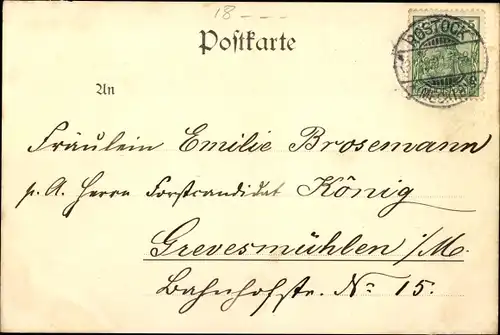 18 - - -
Postkarte
ROSTOCK
An
Fräulein Emilie Brosemann
p. A. Herrn Forstcandidat König
Grevesmühlen i/M.
Bahnhofstr. No 15.